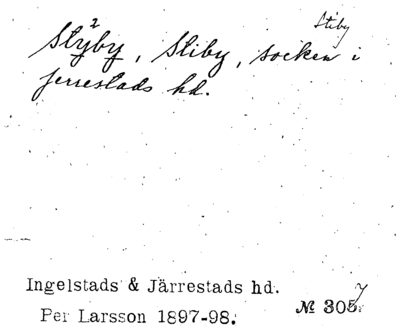 Stiby
Stÿ²by, Stiby, socken i
Jerrestads hd.
Ingelstads & Järrestads hd.
Per Larsson 1897-98.
№ 3057